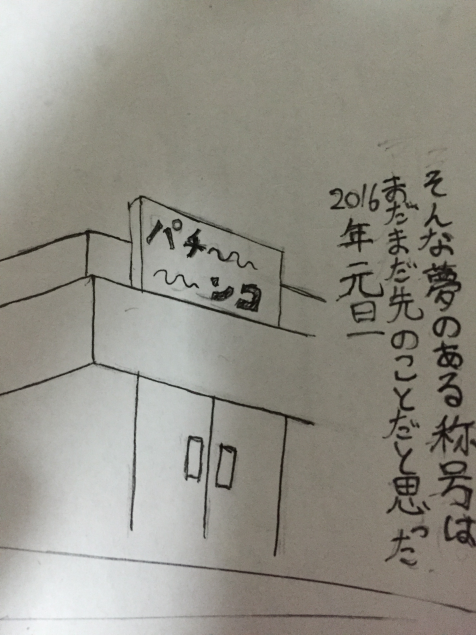 そんな夢のある称号は
まだまだ先のことだと思った
2016年元旦
パチ〜〜
〜〜ンコ